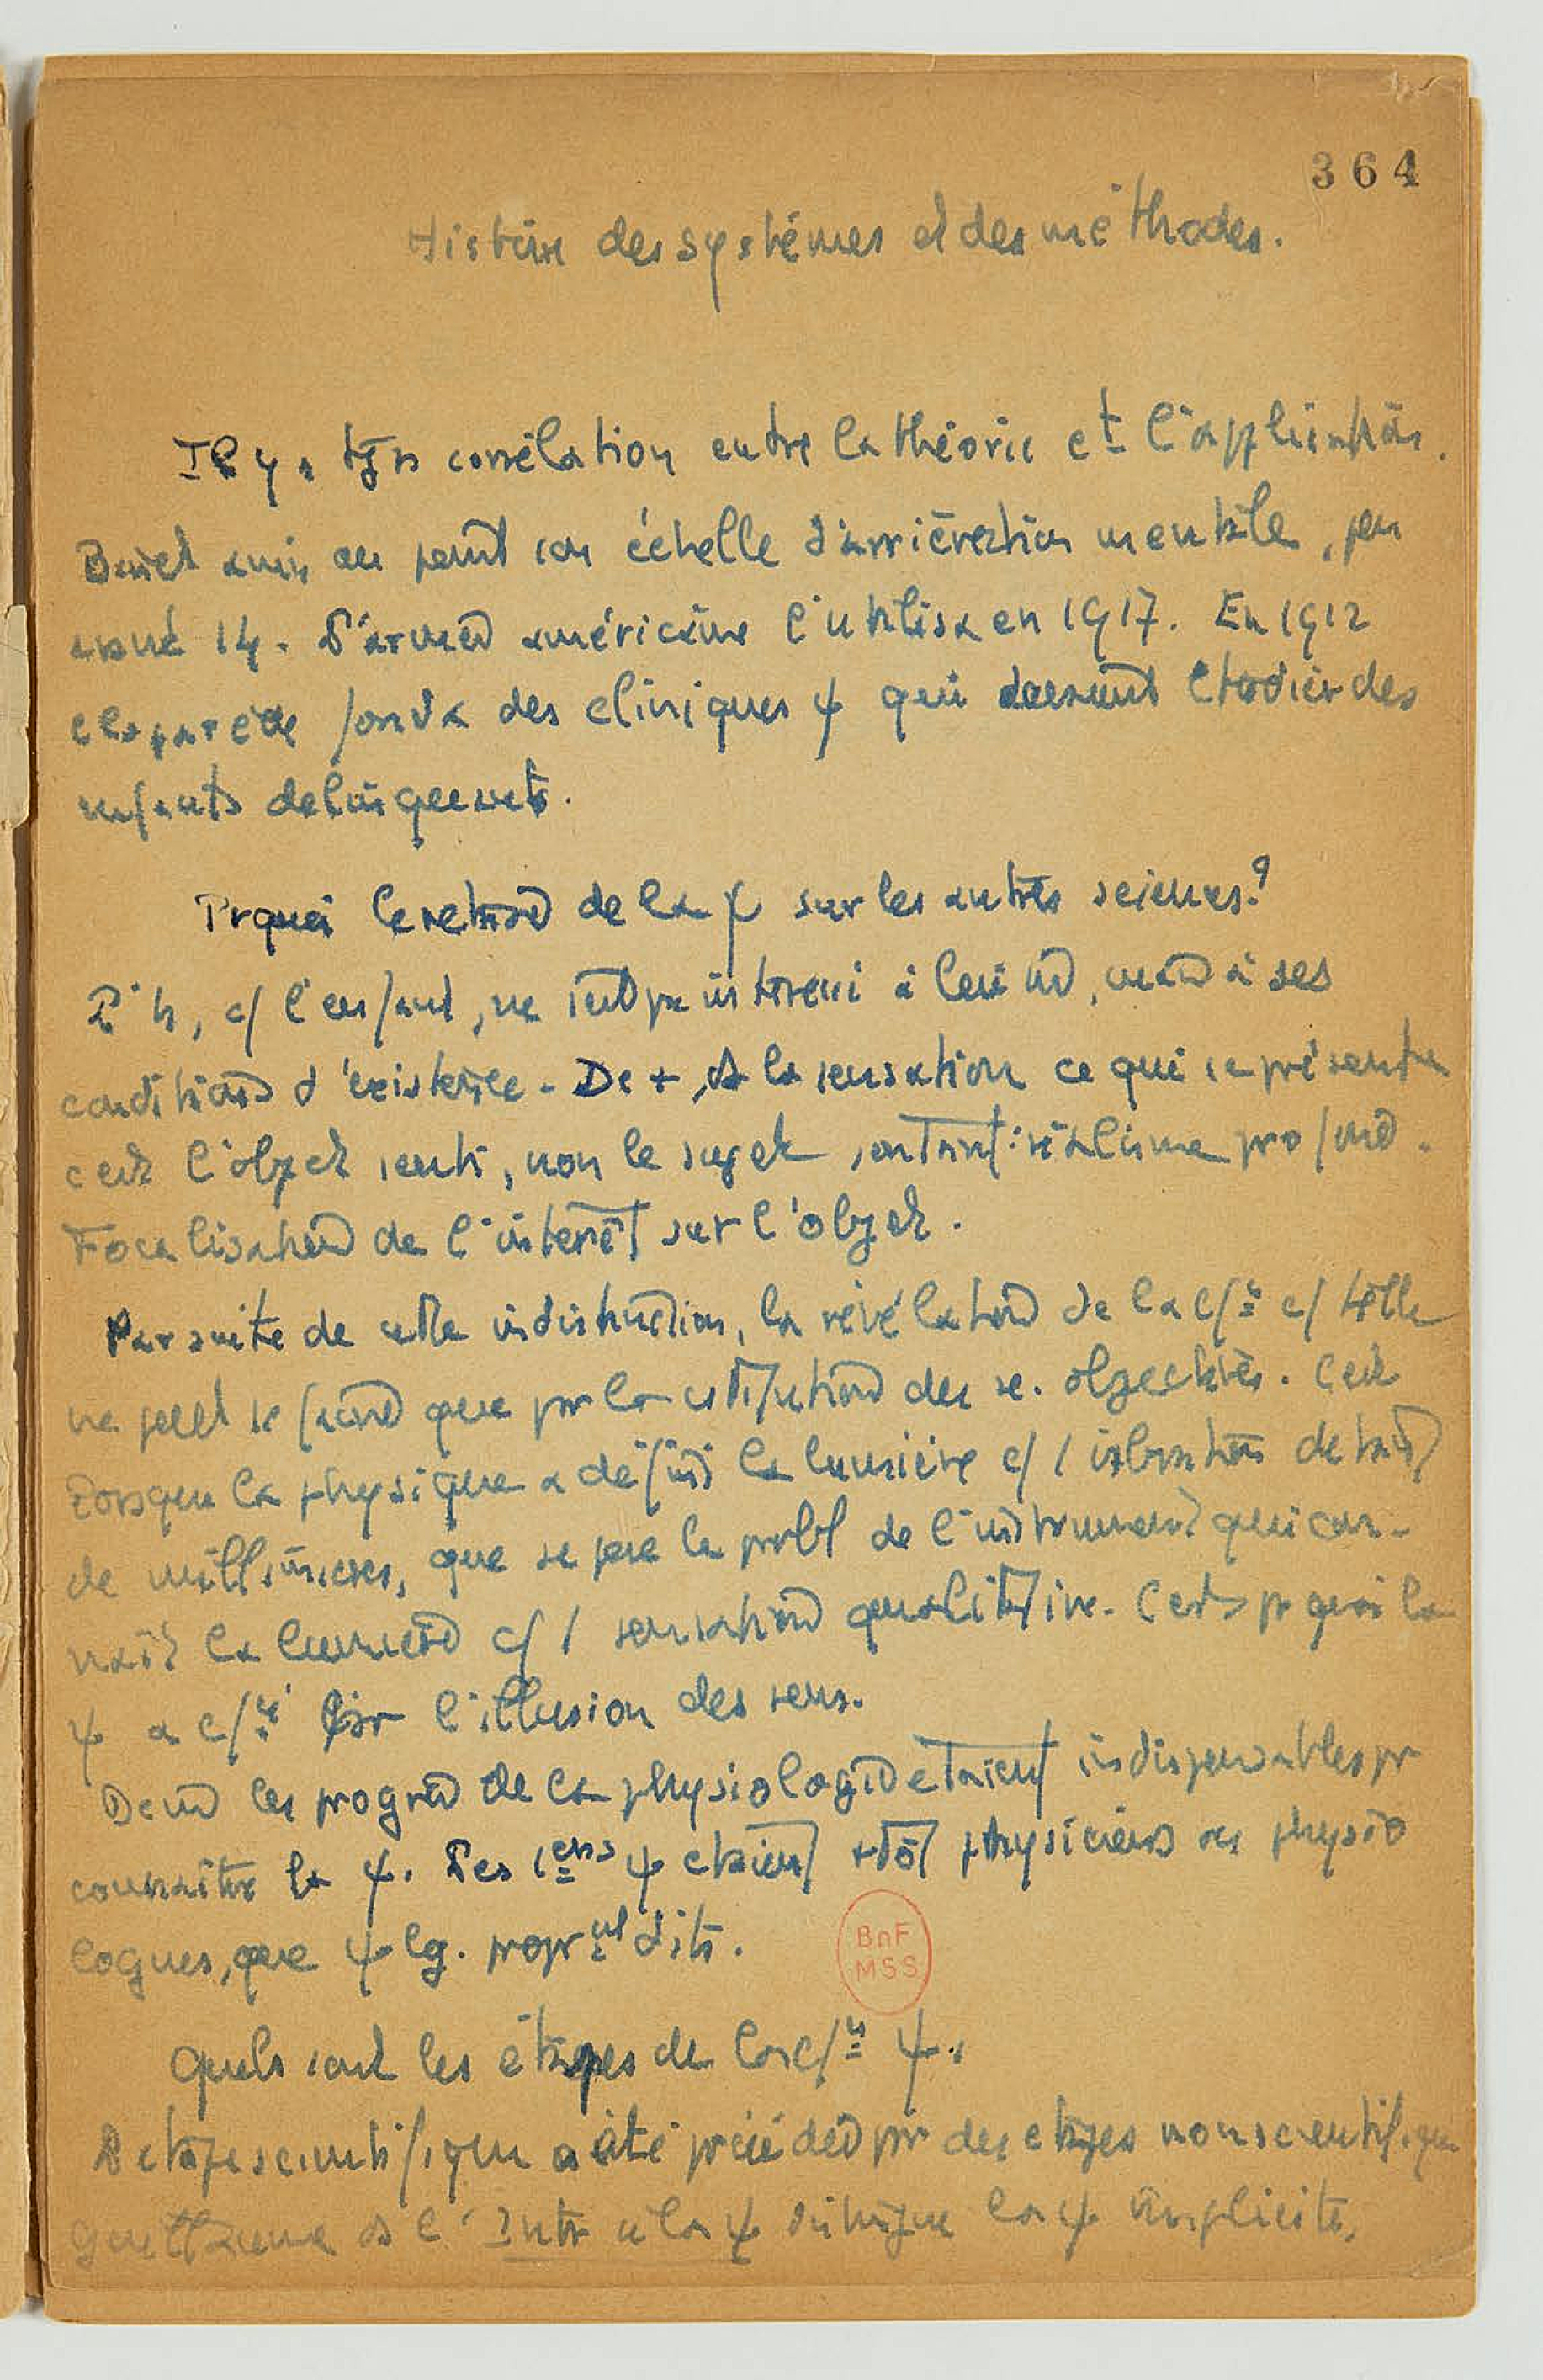 364
Histoire des systèmes et des méthodes.
Il y a tjrs corrélation entre la théorie et l'application.
Binet a mis au point son échelle d'arriération mentale,
14. L'armée américaine l'utilisa en 1917. En 1912
Claparède fonda des cliniques ψ qui devaient étudier des
enfants delinquents.
Prquoi le retard de la ψ sur les autres sciences?
L'h, c/ l'enfant, ne s'est pas intéressé à lui md, mais à ses
conditions d'existence - De +, ds la sensation ce qui se présente
c'est l'objet senti, non le sujet sentant: réalisme profond.
Focalisation de l'intérêt sur l'objet.
Par suite de cette indistinction, la révélation de la c/ce c/ telle
ne peut se faire que par la cstitution des sc. objectives. C'est
lorsque la physique a défini la lumière c/ 1 vibration de tant
de millimicrons, que se pose le probl de l'instrument qui con-
naît la lumière c/ 1 sensation qualitative. C'est pr quoi la
ψ a c/cé par l'illusion des sens.
Donc les progrès de la physiologie etaient indispensables pr
connaitre la ψ. Les 1ers ψ etaient +tôt physiciens ou physio
logues, que ψlg. proprnt dits.
Quels sont les étapes de la c/ce ψ.
L'etape scientifique a été précédée par des etapes non scientifiques
Guillaume ds l'Intr à la ψ distingue la ψ implicite,
BnF
MSS